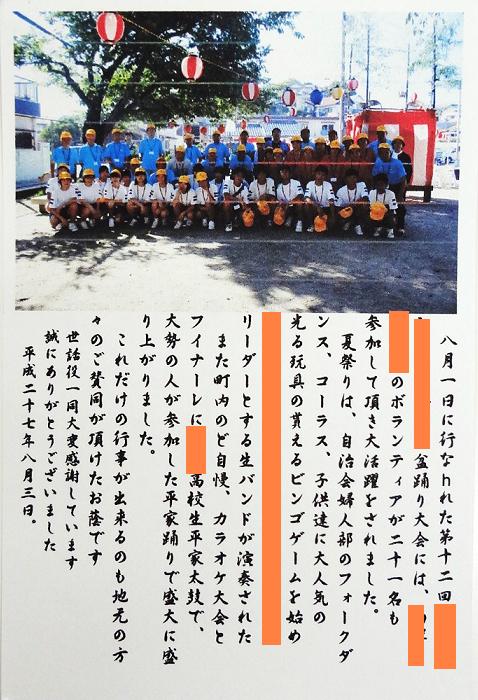 八月一日に行なhれた第十二回
盆踊り大会には、
のボランティアが二十一名も
参加して頂き大活躍をされました。
夏祭りは、自治会婦人部のフォークダ
ンス、コーラス、子供達に大人気の
光る玩具の貰えるビンゴゲームを始め
リーダーとする生バンドが演奏された
また町内のど自慢、カラオケ大会と
フイナーレに高校生平家太鼓で、
大勢の人が参加した平家踊りで盛大に盛
り上がりました。
これだけの行事が出来るのも地元の方
々のご賛同が頂けたお蔭です
世話役一同大変感謝しています
誠にありがとうございました
平成二十七年八月三日。